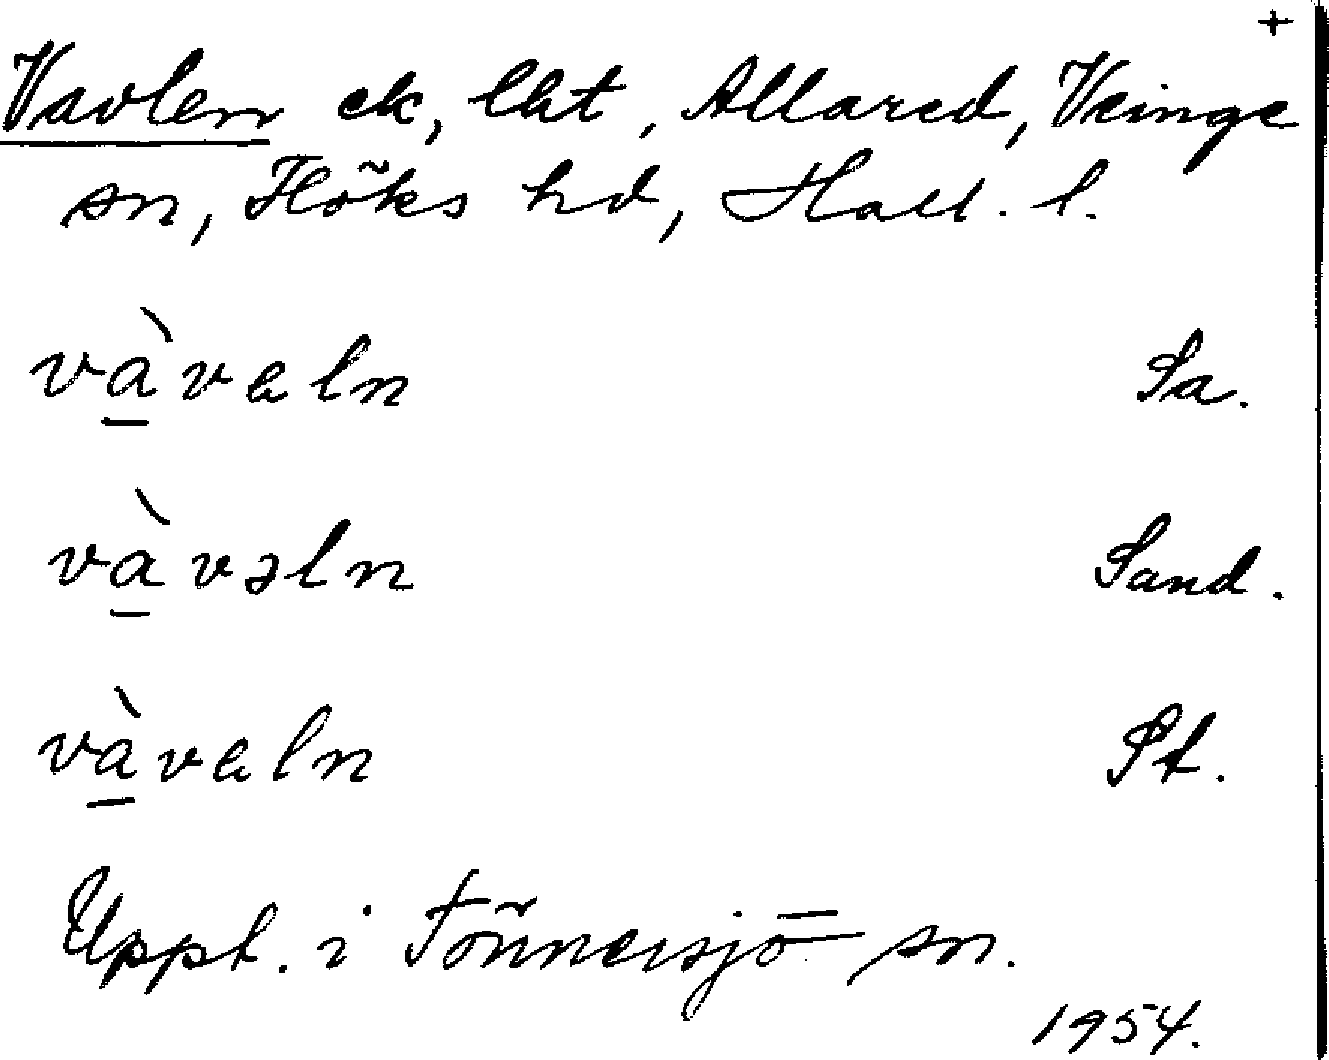 +
Vavlen ek, lht, Allared, Veinge
sn, Höks hd, Hall. l.
và̱vɐln Sa.
và̱vəln Sand.
và̱vɐln St.
Uppt. i Tönnersjö sn.
1954.